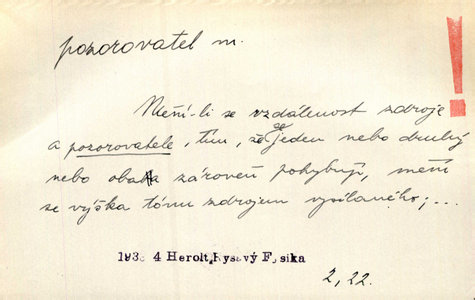 pozorovatel m.
!
Mění-li se vzdálenost zdroje
a pozorovatele, tím, že se jeden nebo druhý
nebo oba zároveň pohybují, mění
se výška tónu zdrojem vysílaného; ...
193 4 Herolt, Rysavý F sika
2, 22.